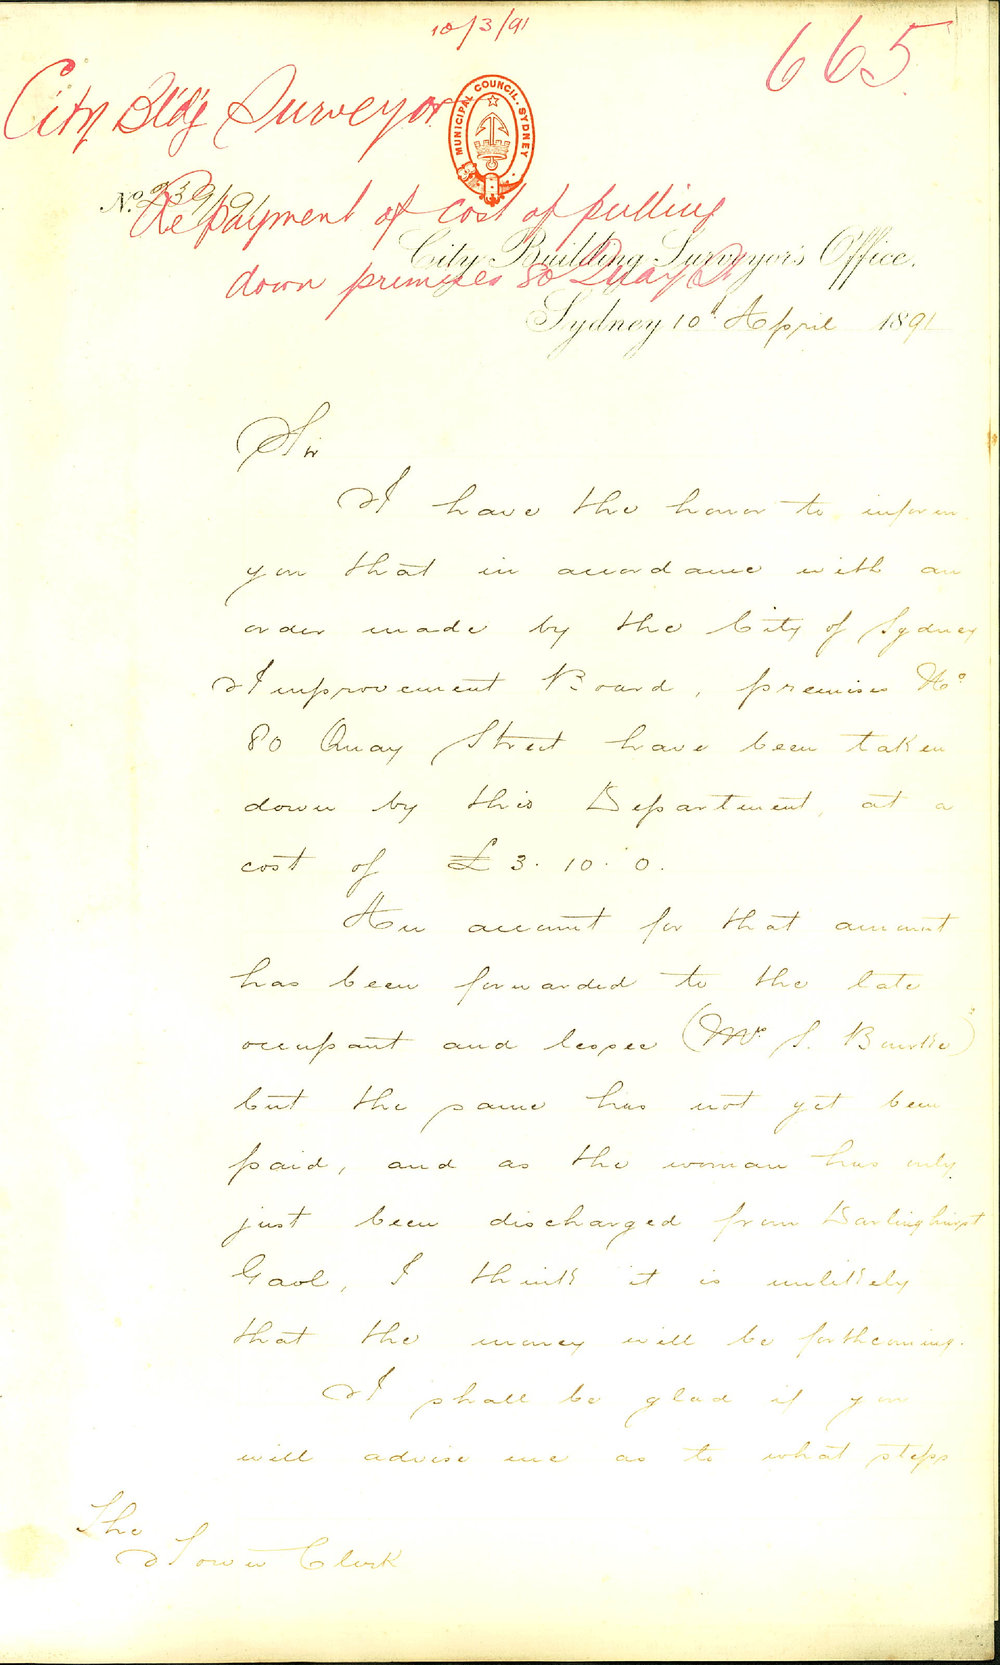 10/3/91
665
City Bldg Surveyor
MUNICIPAL COUNCIL. SYDNEY
No. 239/91
Re payment of cost of pulling
City Building Surveyor's Office.
down premises 80 Quay St
Sydney 10th April 1891
Sir
I have the honor to inform
you that in accordance with an
order made by the City of Sydney
Improvement Board, premises No
80 Quay Street have been taken
down by this Department, at a
cost of £3. 10. 0.
An account for that amount
has been forwarded to the late
occupant and lessee (Mrs S. Bourke)
but the same has not yet been
paid, and as the woman has only
just been discharged from Darlinghurst
Gaol, I think it is unlikely
that the money will be forthcoming.
I shall be glad if you
will advise me as to what steps
The
Town Clerk